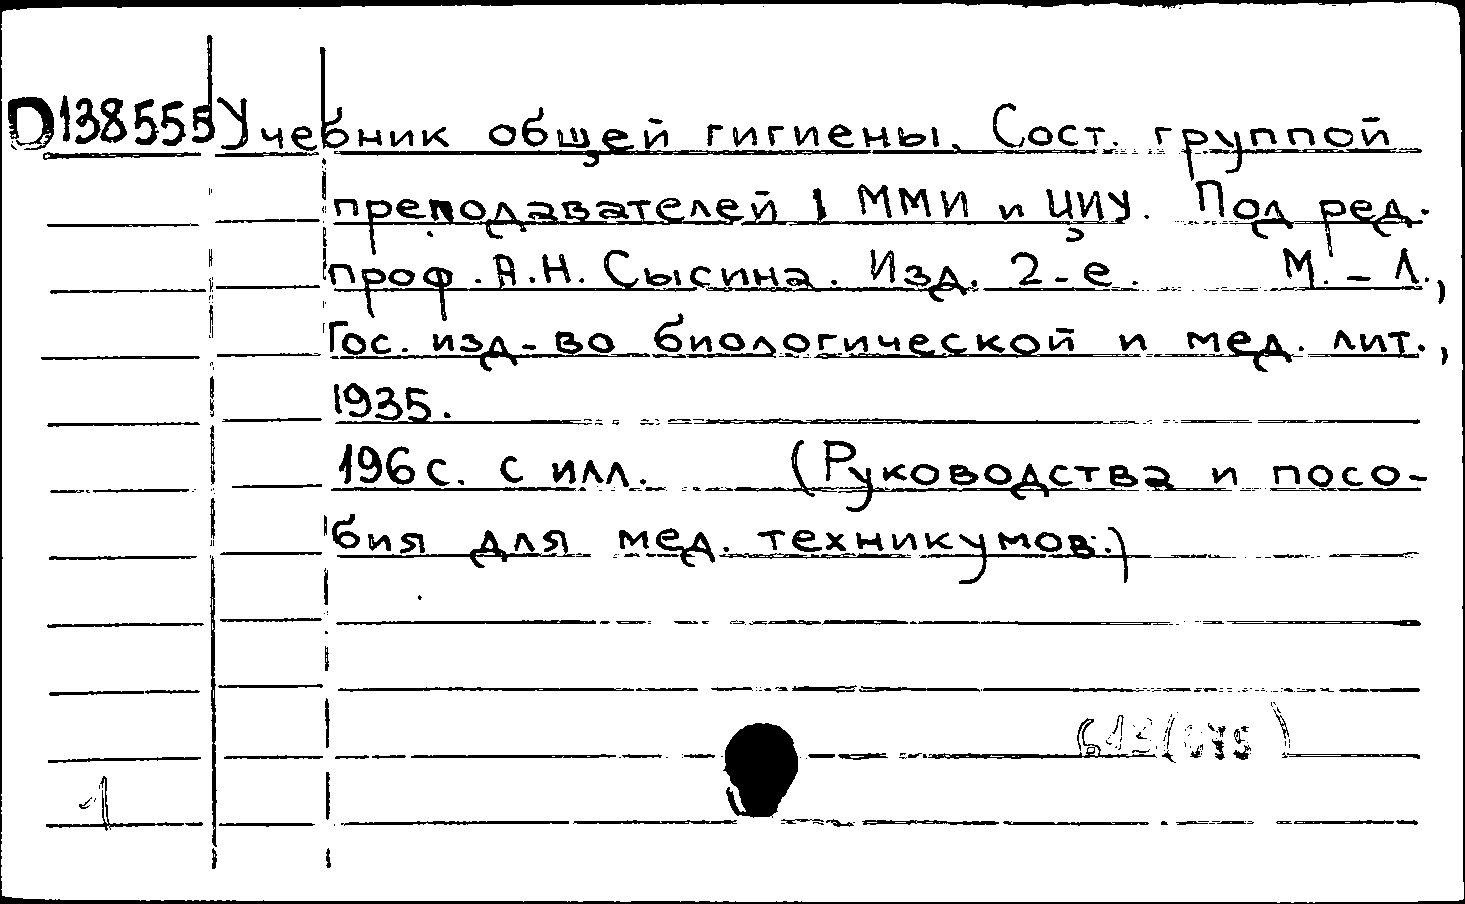 D138555 Учебник общей гигиены. Сост. группой
преподавателей 1 ММИ и ЦИУ. Под ред.
проф. А.Н. Сысина. Изд. 2-е. М. - Л.,
Гос. изд-во биологической и мед. лит.,
1935.
196 с. с илл. (Руководства и посо-
бия для мед. техникумов.)
613(075)
1